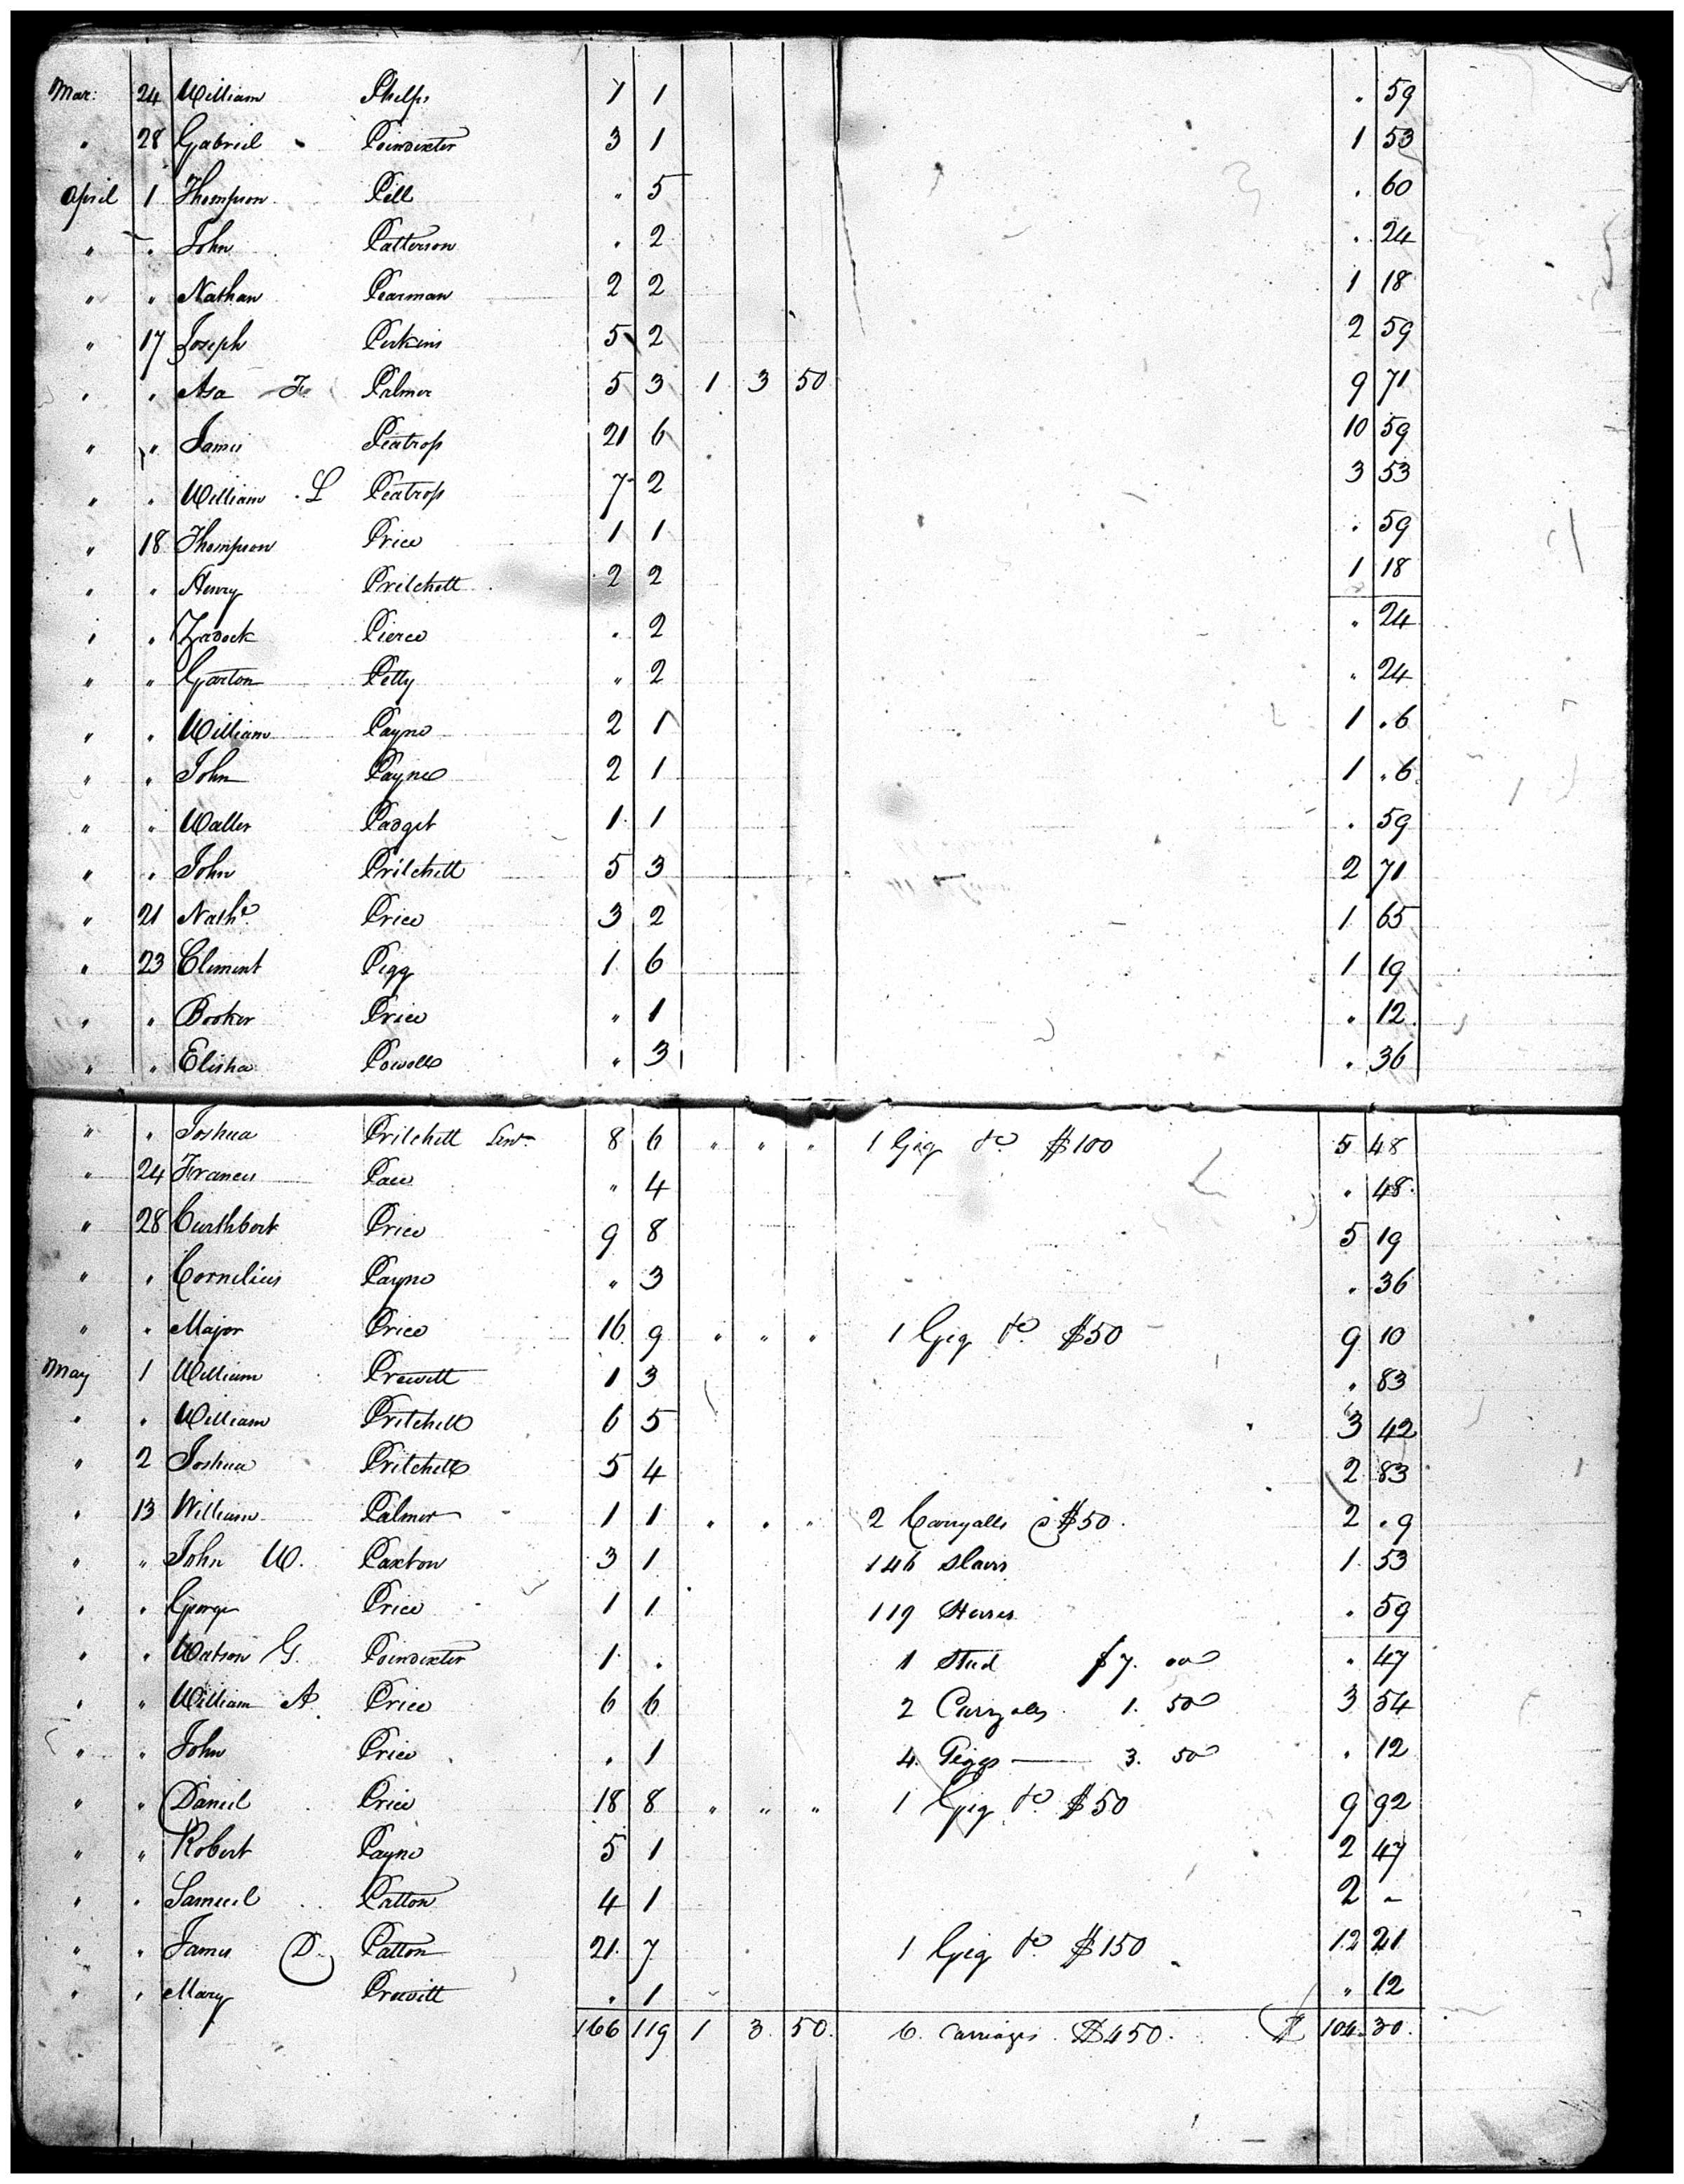 Mar: 24 William Phelps 1 1 . 59
" 28 Gabriel Poindexter 3 1 1 53
April 1 Thompson Pill " 5 . 60
" " John Patterson . 2 . 24
" " Nathan Pearman 2 2 1 18
" 17 Joseph Perkins 5 2 2 59
" " Asa F Palmer 5 3 1 3 50 9 71
" " James Peatross 21 6 10 59
" " William L Peatross 7 2 3 53
" 18 Thompson Price 1 1 . 59
" " Henry Pritchett 2 2 1 18
" " Zadock Pierce . 2 " 24
" " Garton Petty " 2 " 24
" " William Payne 2 1 1 . 6
" " John Payne 2 1 1 . 6
" " Waller Padget 1 1 . 59
" " John Pritchett 5 3 2 71
" 21 Nathl. Price 3 2 1 65
" 23 Clement Pigg 1 6 1 19
" " Booker Price " 1 " 12
" " Elisha Powell " 3 . 36
" " Joshua Pritchett Senr 8 6 " " " 1 Gig do. $100 5 48
" 24 Francis Pace " 4 " 48
" 28 Curthbert Price 9 8 5 19
" " Cornelius Payne " 3 . 36
" " Major Price 16 9 " " " 1 Gig do. $50 9 10
May 1 William Prewitt 1 3 " 83
" " William Pritchett 6 5 3 42
" 2 Joshua Pritchett 5 4 2 83
" 13 William Palmer 1 1 " " " 2 Carryalls @ $50. 2 . 9
" " John W. Paxton 3 1 146 Slaves 1 53
" " George Price 1 1 119 Horses . 59
" " Watson G. Poindexter 1 . 1 Stud $7. 00 " 47
" " William A. Price 6 6 2 Carryalls 1. 50 3 54
" " John Price . 1 4. Giggs — 3. 50 . 12
" " Daniel Price 18 8 " " " 1 Gig do. $50 9 92
" " Robert Payne 5 1 2 47
" " Samuel Patton 4 1 2 -
" " James D. Patton 21 7 1 Gig do. $150 12 21
" " Mary Prewitt " 1 " 12
166 119 1 3. 50. 6. Carriages. $450. $ 104. 30.